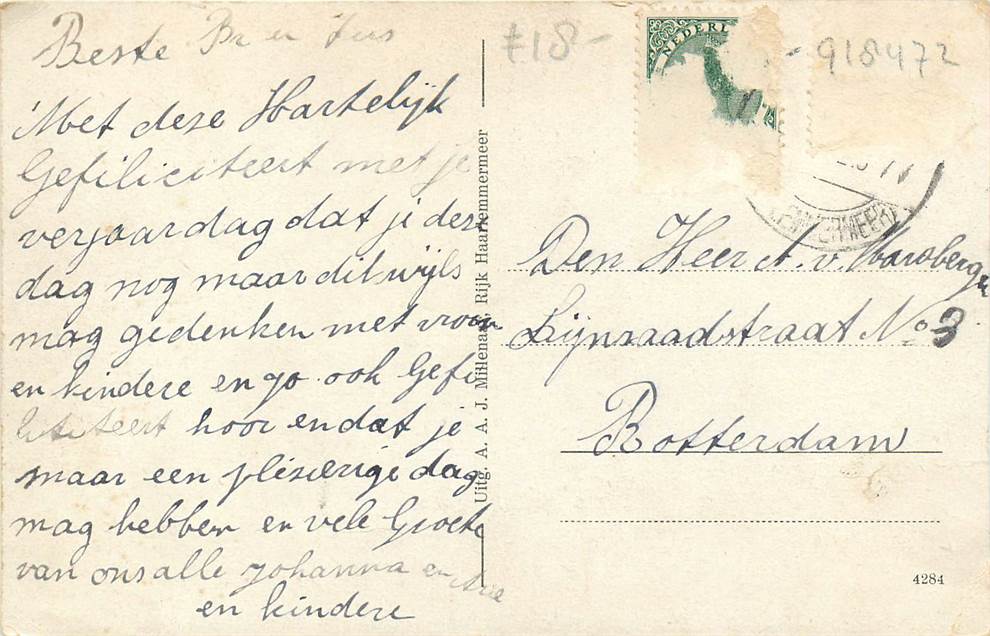 Beste Br en Zus
Met deze Hartelijk
Gefiliciteert met je
verjaardag dat je dese
dag nog maar dikwijls
mag gedenken met vrou
en kindere en zo ook Gefi
liciteert hoor en dat je
maar een plesierige dag
mag hebben en vele Groete
van ons alle Johanna en
en kindere
Uitg. A. A. J. Millenaar, Rijk Haarlemmermeer
£18-
918472
NEDERL
Den Heer A. v.
Lijnzaadstraat No 3
Rotterdam
4284